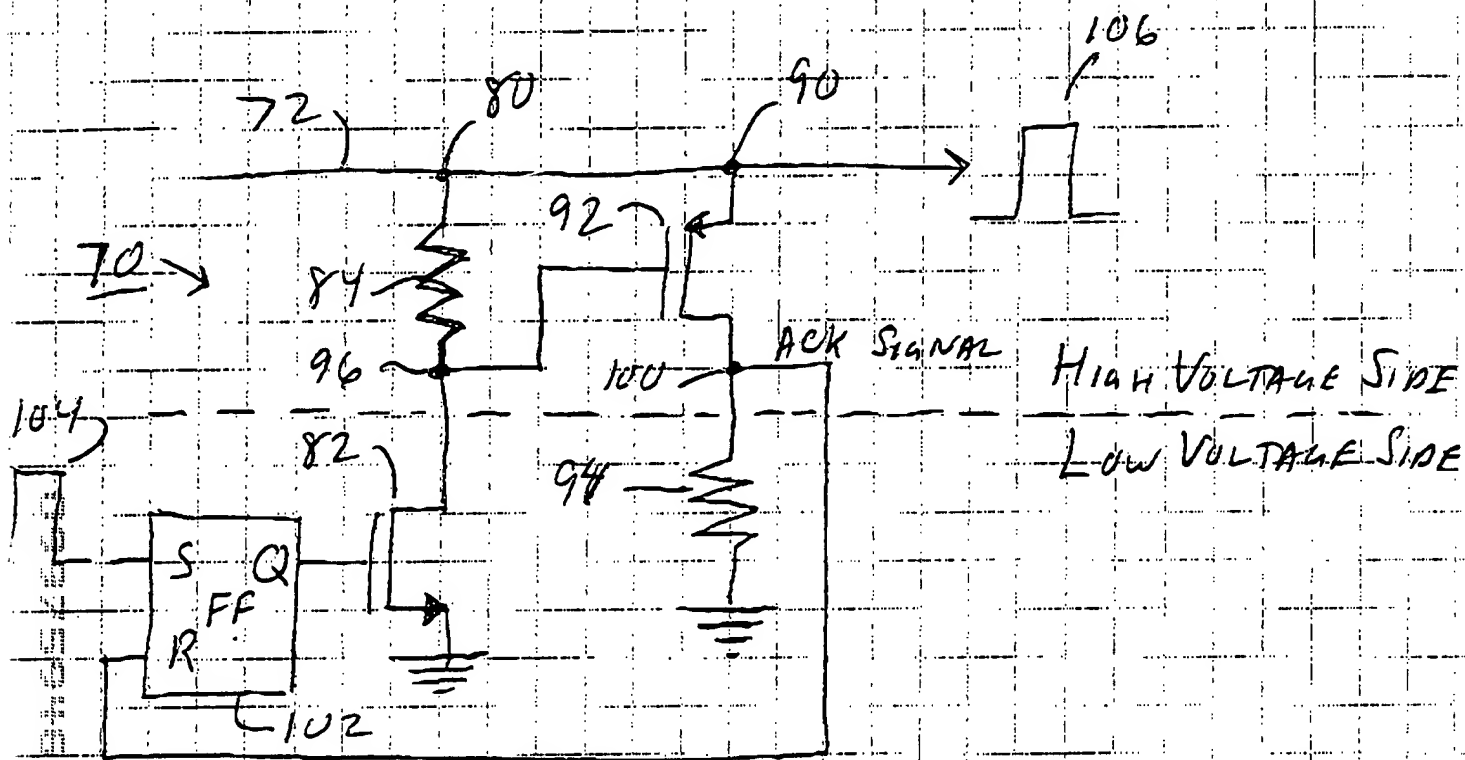 106
72
80
90
92
70
84
96
100
ACK SIGNAL
HIGH VOLTAGE SIDE
104
82
LOW VOLTAGE SIDE
94
S Q
FF
R
102